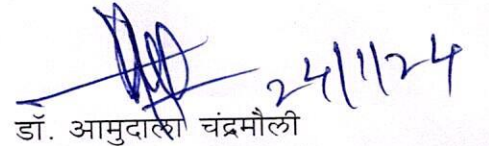 24/1/24
डॉ. आमुदाला चंद्रमौली